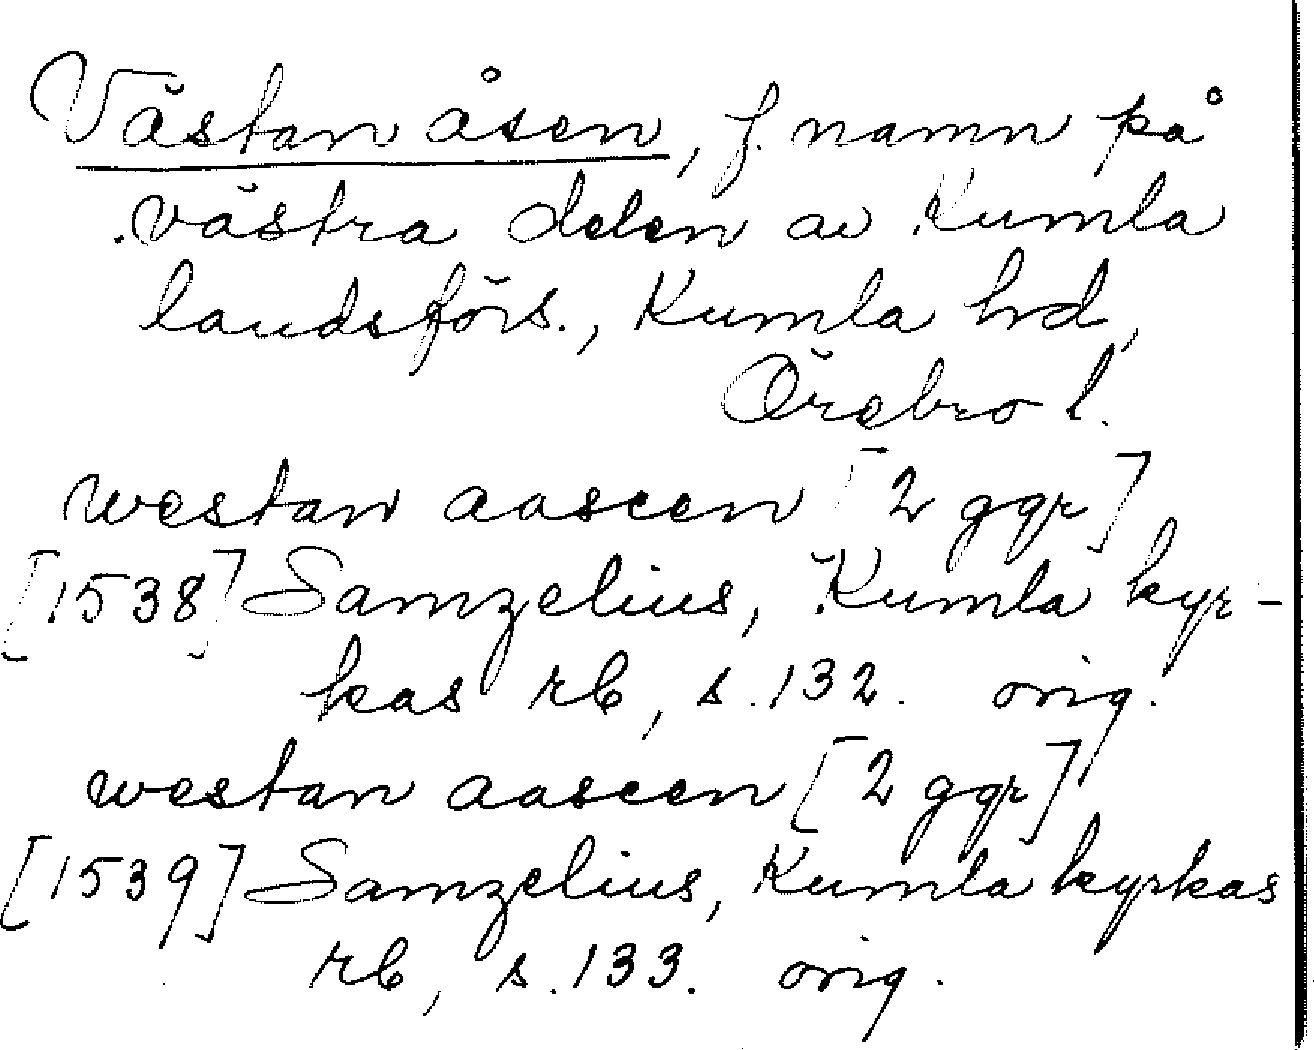 Västan åsen, f. namn på
västra delen av Kumla
landsförs., Kumla hd,
Örebro l.
westan aaseen [2 ggr]
[1538] Samzelius, Kumla kyr-
kas rb, s. 132. orig.
westan aaseen [2 ggr]
[1539] Samzelius, Kumla kyrkas
rb, s. 133. orig.